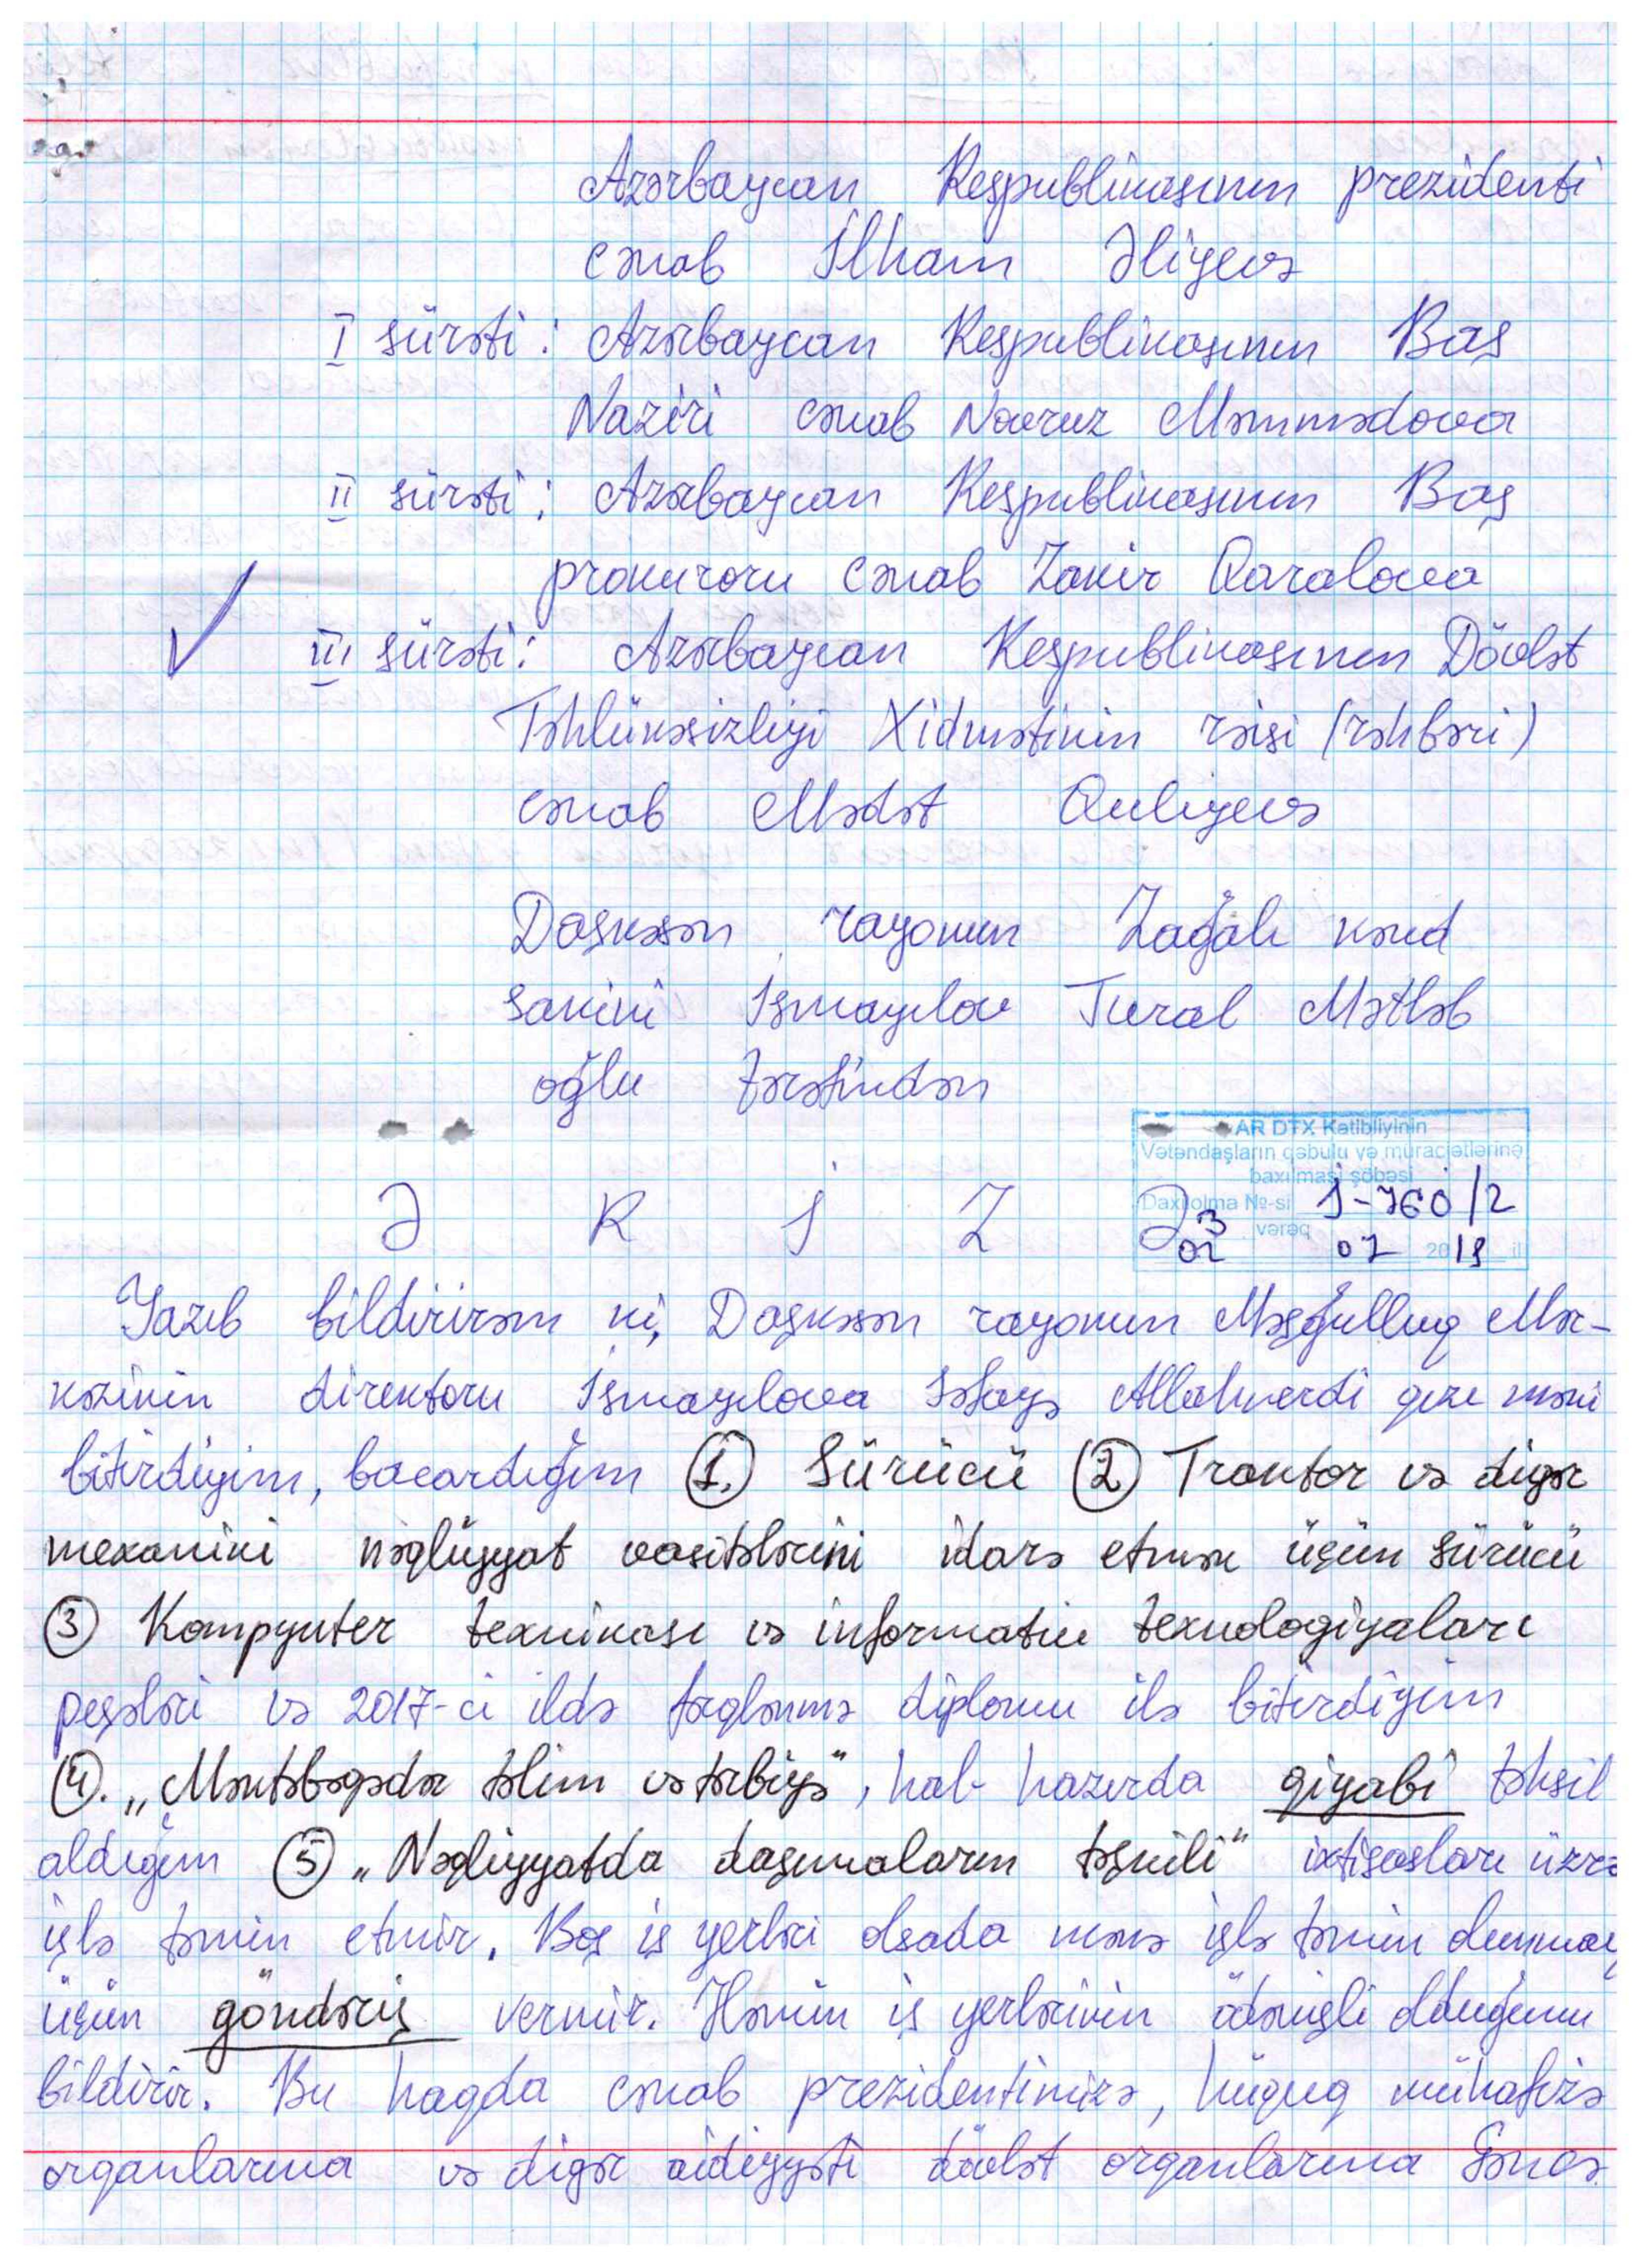 Azərbaycan Respublikasının prezidenti
cənab İlham Əliyevə
I surəti: Azərbaycan Respublikasının Baş
Naziri cənab Novruz Məmmədova
II surəti: Azərbaycan Respublikasının Baş
prokuroru cənab Zakir Qaralova
III surəti: Azərbaycan Respublikasının Dövlət
Təhlükəsizliyi Xidmətinin rəisi (rəhbəri)
cənab Mədət Quliyevə
Daşkəsən rayonun Zağalı kənd
sakini İsmayılov Tural Mətləb
oğlu tərəfindən
AR DTX Katibliyinin
Vətəndaşların qəbulu və müraciətlərinə
baxılması şöbəsi
Daxilolma №-si İ-760/2
3 vərəq
02 07 2018 il
Ə R İ Z Ə
Yazıb bildirirəm ki, Daşkəsən rayonun Məşğulluq Mər-
kəzinin direktoru İsmayılova Səfayə Allahverdi qızı məni
bitirdiyim, bacardığım 1. Sürücü 2 Traktor və digər
mexaniki nəqliyyat vasitələrini idarə etmək üçün sürücü
3 Kompyuter texnikası və informatik texnologiyaları
peşələri və 2017-ci ildə fərqlənmə diplomu ilə bitirdiyim
4. „Məktəbəqədər təlim və tərbiyə", hal-hazırda qiyabi təhsil
aldığım 5 „Nəqliyyatda daşımaların təşkili" ixtisasları üzrə
işlə təmin etmir. Boş iş yerləri olsada mənə işlə təmin olunmaq
üçün göndəriş vermir. Həmin iş yerlərinin ödənişli olduğunu
bildirir. Bu haqda cənab prezidentimizə, hüquq mühafizə
orqanlarına və digər aidiyyəti dövlət orqanlarına